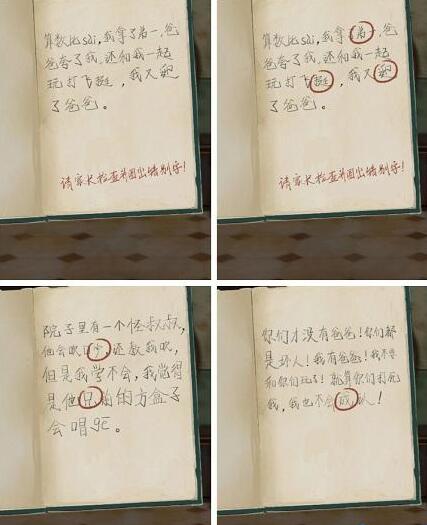 算数比sài,我拿了弟一,爸
爸夸了我,还和我一起
玩打飞挺,我又
了爸爸。
请家长检查并圈出错别字!
算数比sài,我拿了弟一,爸
爸夸了我,还和我一起
玩打飞挺,我又
了爸爸。
请家长检查并圈出错别字!
院子里有一个怪叔叔,
他会吹口今,还教我吹,
但是我学不会,我觉得
是他兄前的方盒子
会唱gē。
你们才没有爸爸!你们都
是坏人!我有爸爸!我不要
和你们玩了!就算你们打死
我,我也不会成认!